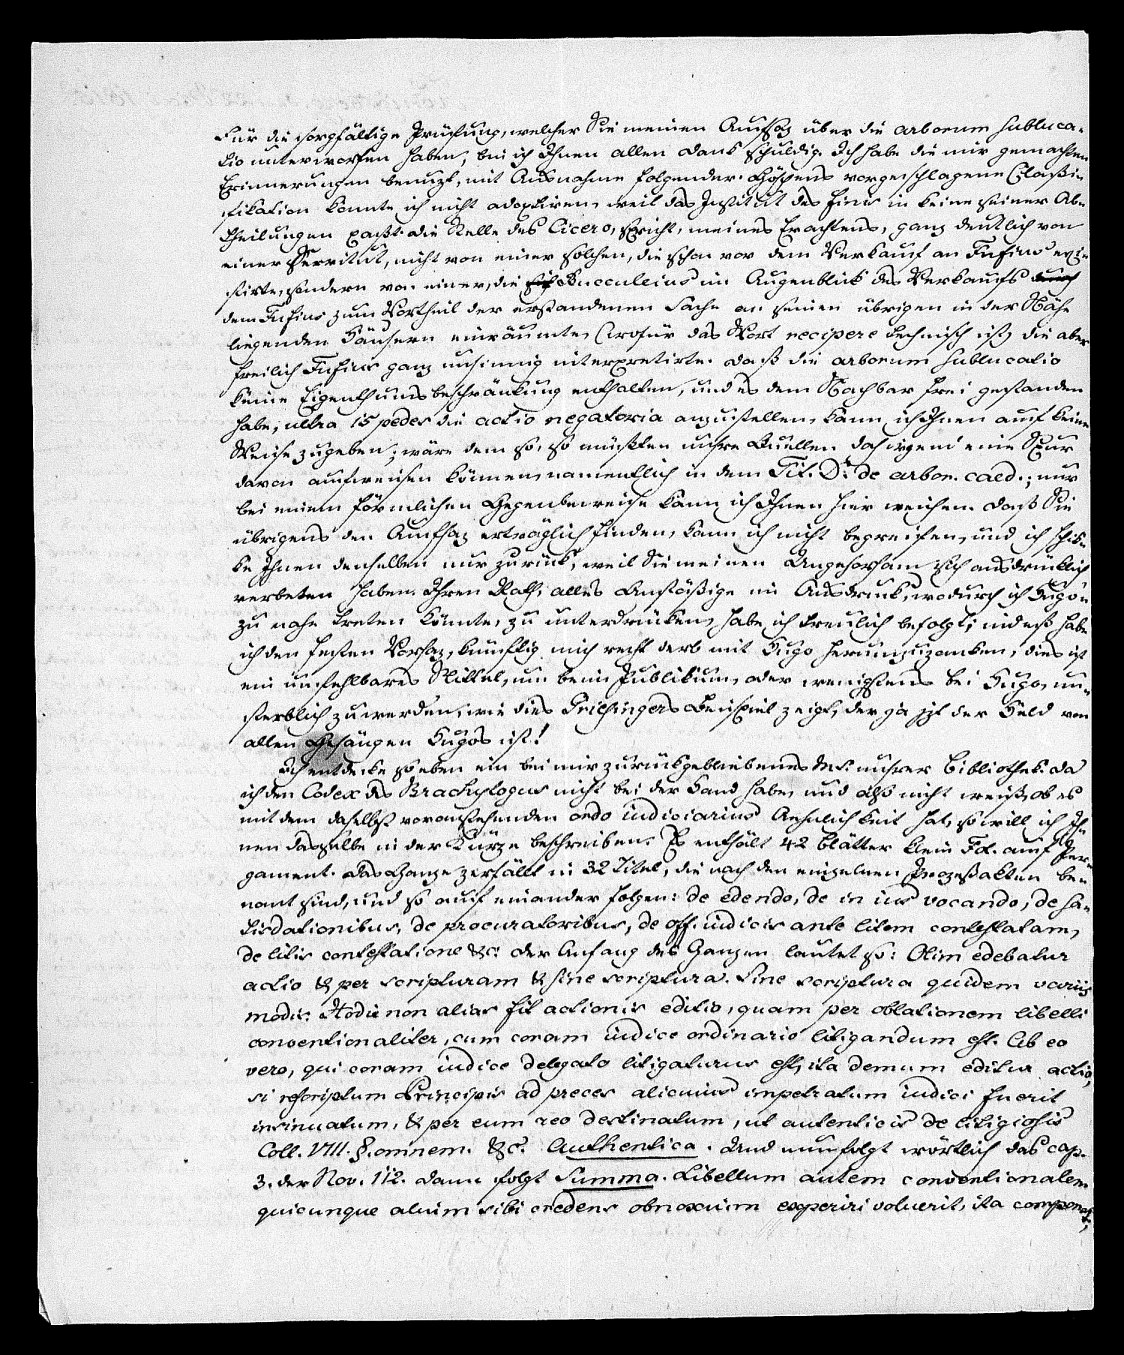 Für die sorgfältige Prüfung, welcher Sie meinen Aufsaz über die arborum subluca-
tio unterworfen haben, bin ich Ihnen allen Dank schuldig. Ich habe die mir gemachten
Erinnerungen benuzt, mit Ausnahme folgender: vorgeschlagene Classi-
fikation konnte ich nicht adoptiren, weil das Institut des finis in keine seiner Ab-
theilungen paßt. Die Stelle des Cicero, spricht, meines Erachtens, ganz deutlich von
einer Servitut, nicht von einer solchen, die schon vor dem Verkauf an Fufius exi-
stirte, sondern von einer, die Bucculeius im Augenblick des Verkaufs
dem Fufius zum Vortheil der erstandenen Sache an seinen übrigen in der Nähe
liegenden Häusern einräumte, (wofür das Wort recipere technisch ist, die aber
freilich Fufius ganz unsinnig interpretirte. Daß die arborum sublucatio
keine Eigenthumsbeschränkung enthalten, und es dem Nachbar frei gestanden
habe, ultra 15 pedes die actio negatoria anzustellen, kann ich Ihnen auf keine
Weise zugeben; wäre dem so, so müßten unsre Quellen doch irgend eine Spur
davon aufweisen können, namentlich in dem Tit. D. de arbor. caed.; nur
bei einem förmlichen Gegenbeweise kann ich Ihnen hier weichen. Daß Sie
übrigens den Aufsaz erträglich finden, kann ich nicht begreifen, und ich schik-
ke Ihnen denselben nur zurück, weil Sie meinen Ungehorsam sich ausdrücklich
verbeten haben. Ihren Rath, alles Anstößige im Ausdruck, wodurch ich Hugo'n
zu nahe treten könnte, zu unterdrücken, habe ich treulich befolgt; indeß habe
ich den festen Vorsaz, künftig mich recht derb mit Hugo herumzuzanken; dies ist
ein unfehlbares Mittel, um beim Publikum, oder wenigstens bei Hugo, un-
sterblich zu werden, wie dies Beispiel zeigt, der ja jzt der Held von
allen Gesängen Hugos ist!
Ich entdecke so eben ein bei mir zurückgebliebenes Ms. unsrer Bibliothek. Da
ich den Codex des Brachylogus nicht bei der Hand habe, und also nicht weiß, ob es
mit dem daselbst voranstehenden ordo iudiciarius Aehnlichkeit hat, so will ich Ih-
nen dasselbe in der Kürze beschreiben. Es enthält 42 Blätter klein Fol. auf Per-
gament. Das Ganze zerfällt in 32 Titel, die nach den einzelnen Prozeßakten be-
nant sind, und so auf einander folgen: de edendo, de in ius vocando, de sa-
tisdationibus, de procuratoribus, de off. iudicis ante litem contestatam,
de litis contestatione &c. Der Anfang des Ganzen lautet so: Olim edebatur
actio & per scripturam & sine scriptura. Sine scriptura quidem variis
modis. Hodie non alias fit actionis editio, quam per oblationem libelli
conventionaliter, cum coram iudice ordinario litigandum est. Ab eo
vero, qui coram iudice delegato litigaturus est, ita demum editur actio,
si rescriptum Principis ad preces alicuius impetratum iudici fuerit
insinuatum, & per eum reo destinatum, ut autenticis de litigiosis
Coll. VIII. §. omnem. &c. Authentica. Und nun folgt wörtlich das cap.
3. der Nov. 112. Dann folgt Summa. Libellum autem conventionalem
quicunque alium sibi credens obnoxium experiri voluerit, ita componat,